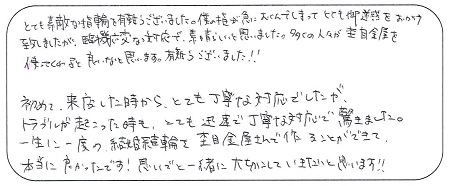 とても素敵な指輪を有難うございました。僕の指が急にむくんでしまってとても御迷惑をおかけ
致しましたが、臨機応変な対応で、素晴らしいと思いました。多くの人々が杢目金屋を
使ってくれると良いなと思います。有難うございました!!
初めて、来店した時から、とても丁寧な対応でしたが、
トラブルが起こった時も、とても迅速で丁寧な対応で驚きました。
一生に一度の結婚指輪を杢目金屋さんで作ることができて、
本当に良かったです!思いでと一緒に大切にしていきたいと思います!!